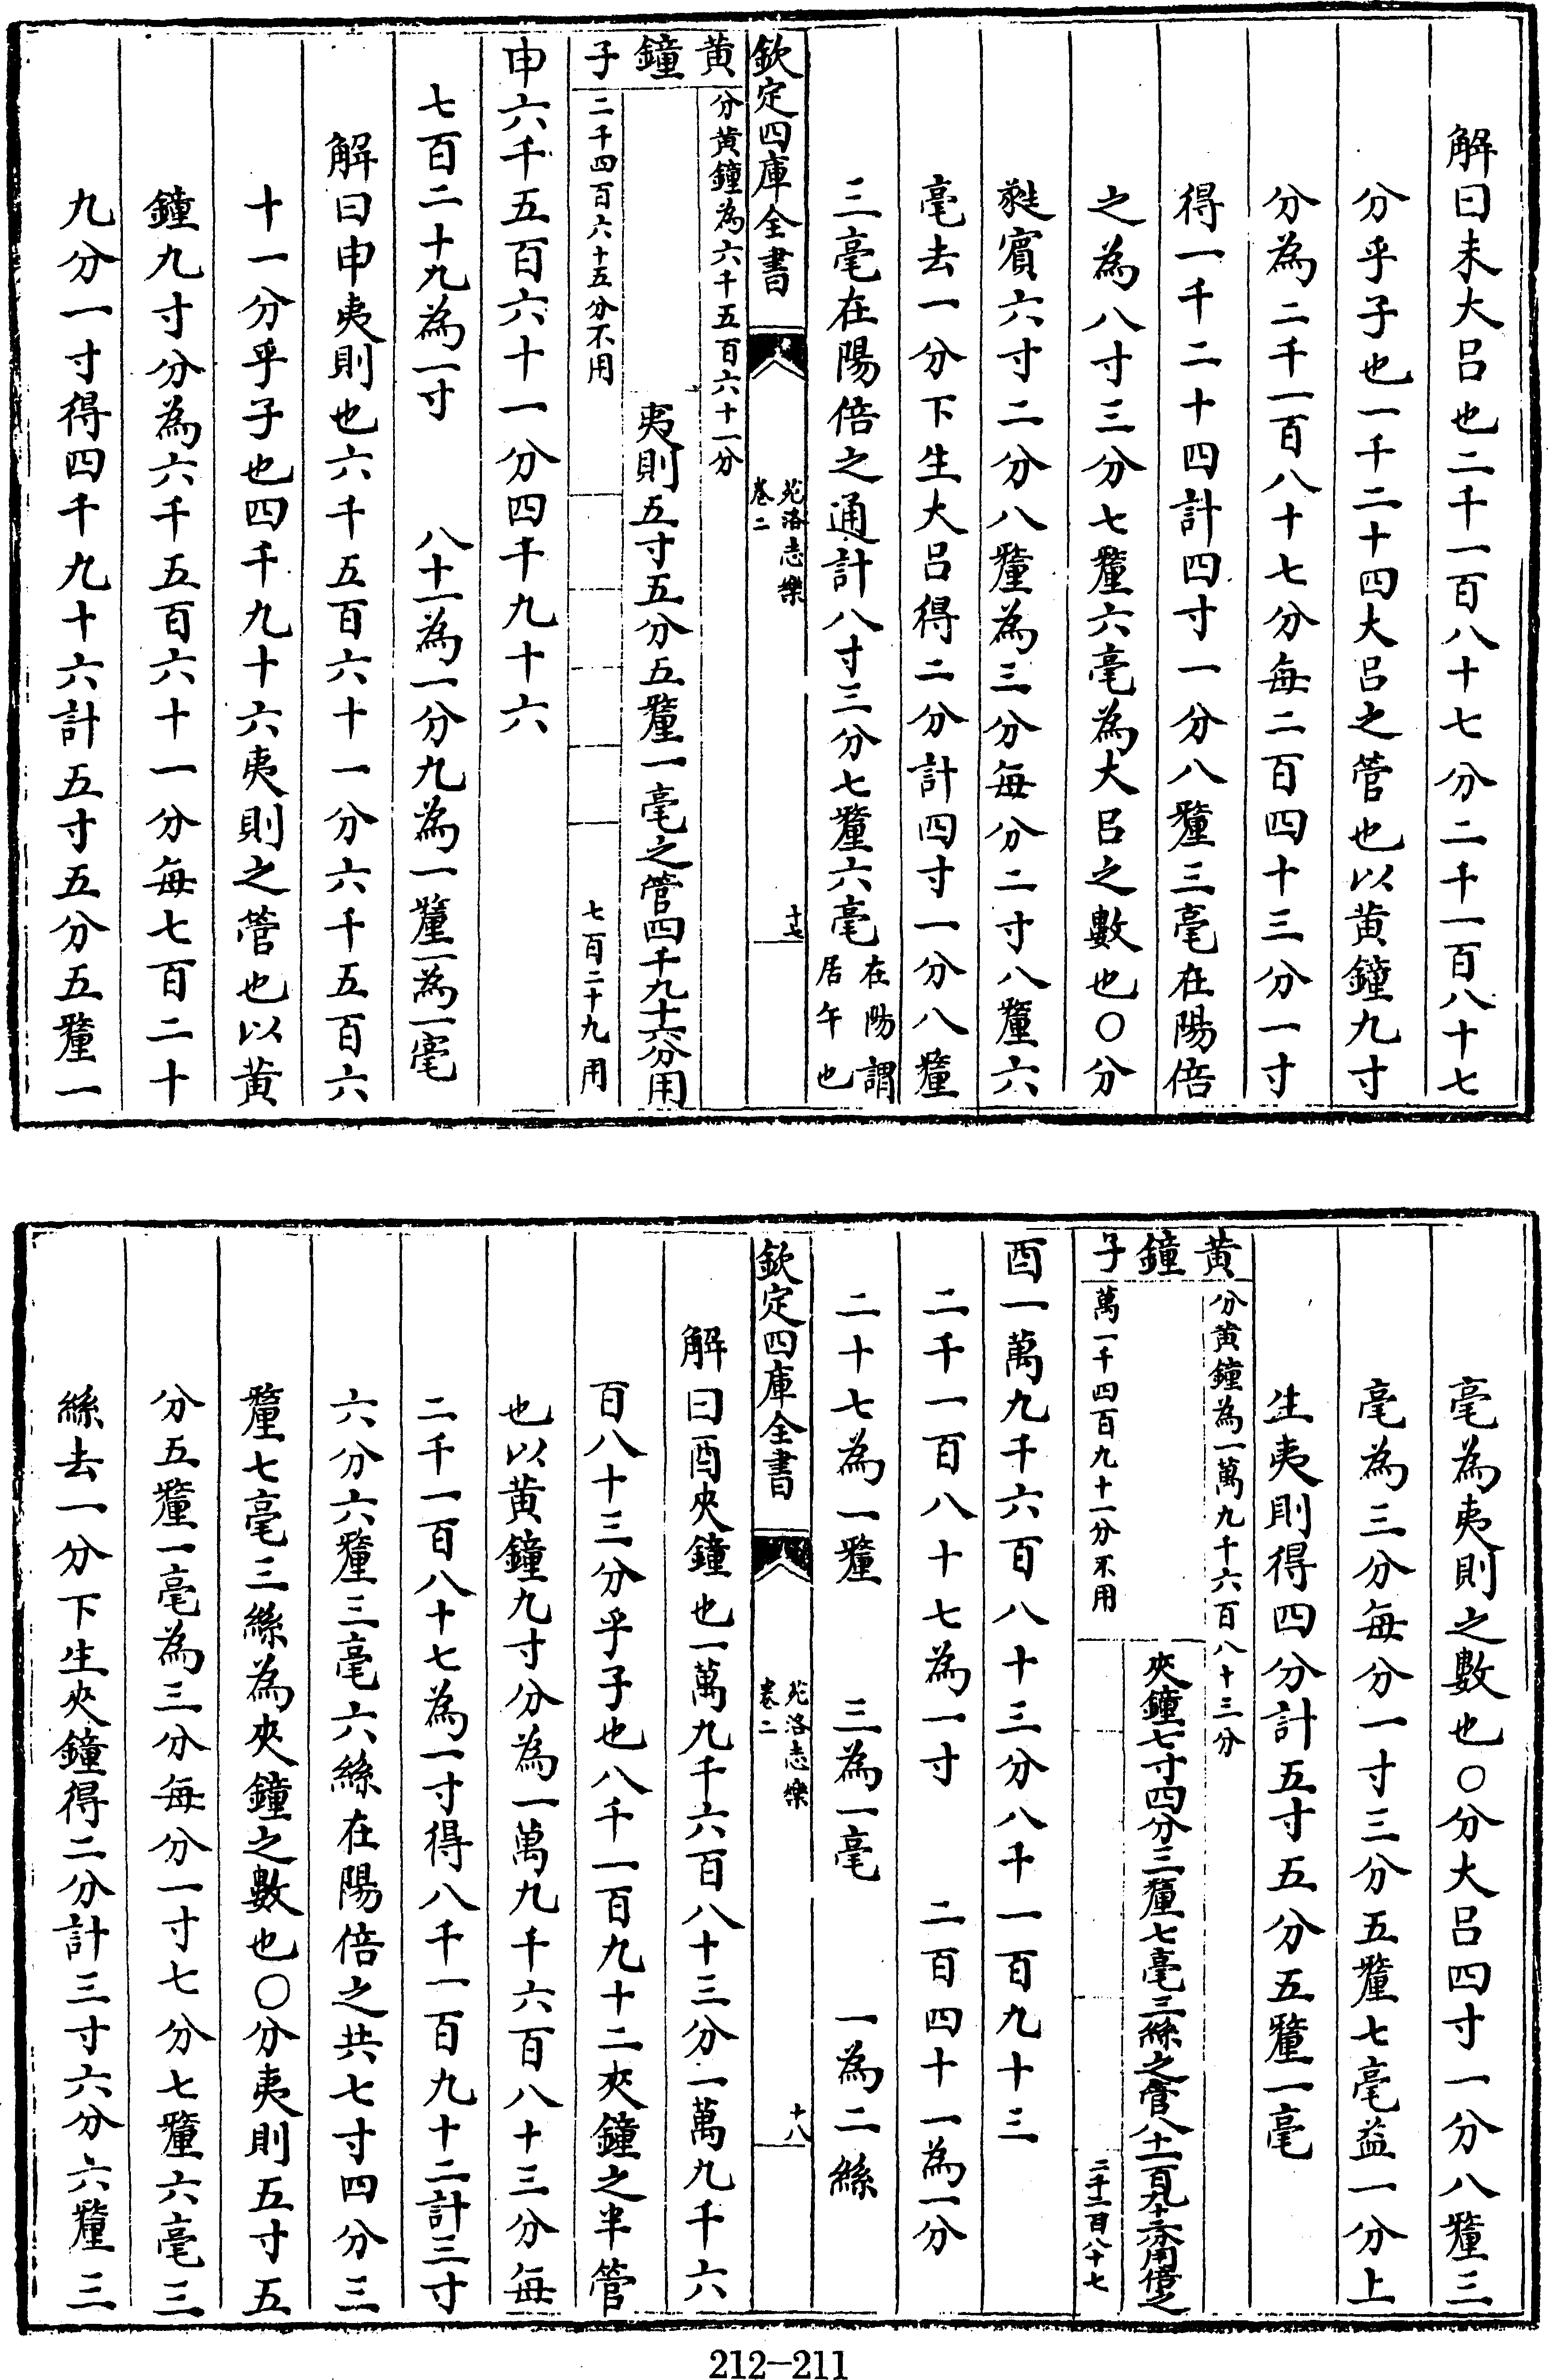 解曰未大呂也二千一百八十七分二千一百八十七
分乎子也一千二十四大呂之管也以黄鐘九寸
分為二千一百八十七分每二百四十三分一寸
得一千二十四計四寸一分八釐三毫在陽倍
之為八寸三分七釐六毫為大呂之數也○分
蕤賓六寸二分八釐為三分每分二寸八釐六
毫去一分下生大呂得二分計四寸一分八釐
三毫在陽倍之通計八寸三分七釐六毫在陽謂居午也
欽定四庫全書 苑洛志樂 卷二 十七
黄鐘子
分黄鐘為六千五百六十一分
夷則五寸五分五釐一毫之管四千九十六分用
二千四百六十五分不用 七百二十九用
申六千五百六十一分四千九十六
七百二十九為一寸 八十一為一分九為一釐一為一毫
解曰申夷則也六千五百六十一分六千五百六
十一分乎子也四千九十六夷則之管也以黄
鐘九寸分為六千五百六十一分每七百二十
九分一寸得四千九十六計五寸五分五釐一
毫為夷則之數也○分大呂四寸一分八釐三
毫為三分每分一寸三分五釐七毫益一分上
生夷則得四分計五寸五分五釐一毫
黄鐘子
分黄鐘為一萬九千六百八十三分
夾鐘七寸四分三釐七毫三絲之管八千一百九十二分用倍之
萬一千四百九十一分不用 二千一百八十七
酉一萬九千六百八十三分八千一百九十三
二千一百八十七為一寸 二百四十一為一分
二十七為一釐 三為一毫 一為二絲
欽定四庫全書 苑洛志樂 卷二 十八
解曰酉夾鐘也一萬九千六百八十三分一萬九千六
百八十三分乎子也八千一百九十二夾鐘之半管
也以黄鐘九寸分為一萬九千六百八十三分每
二千一百八十七為一寸得八千一百九十二計三寸
六分六釐三毫六絲在陽倍之共七寸四分三
釐七毫三絲為夾鐘之數也○分夷則五寸五
分五釐一毫為三分每分一寸七分七釐六毫三
絲去一分下生夾鐘得二分計三寸六分六釐三
212-211